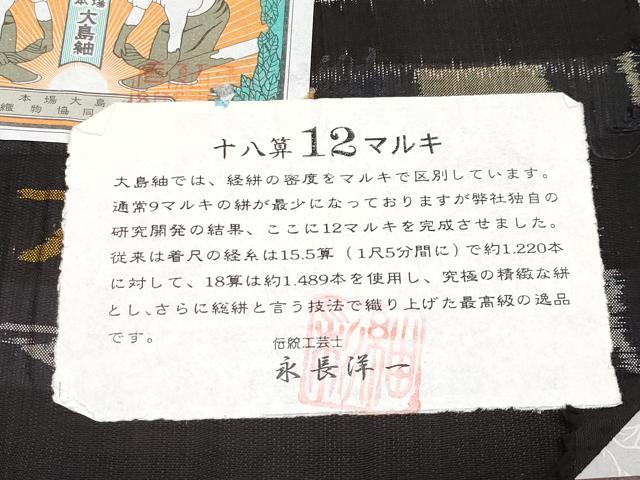 本場
大島紬
本場大島
織物協同
十八算12マルキ
大島紬では、経絣の密度をマルキで区別しています。
通常9マルキの絣が最少になっておりますが弊社独自の
研究開発の結果、ここに12マルキを完成させました。
従来は着尺の経糸は15.5算（1尺5分間に）で約1.220本
に対して、18算は約1.489本を使用し、究極の精緻な絣
とし、さらに総絣と言う技法で織り上げた最高級の逸品
です。
伝統工芸士
永長洋一